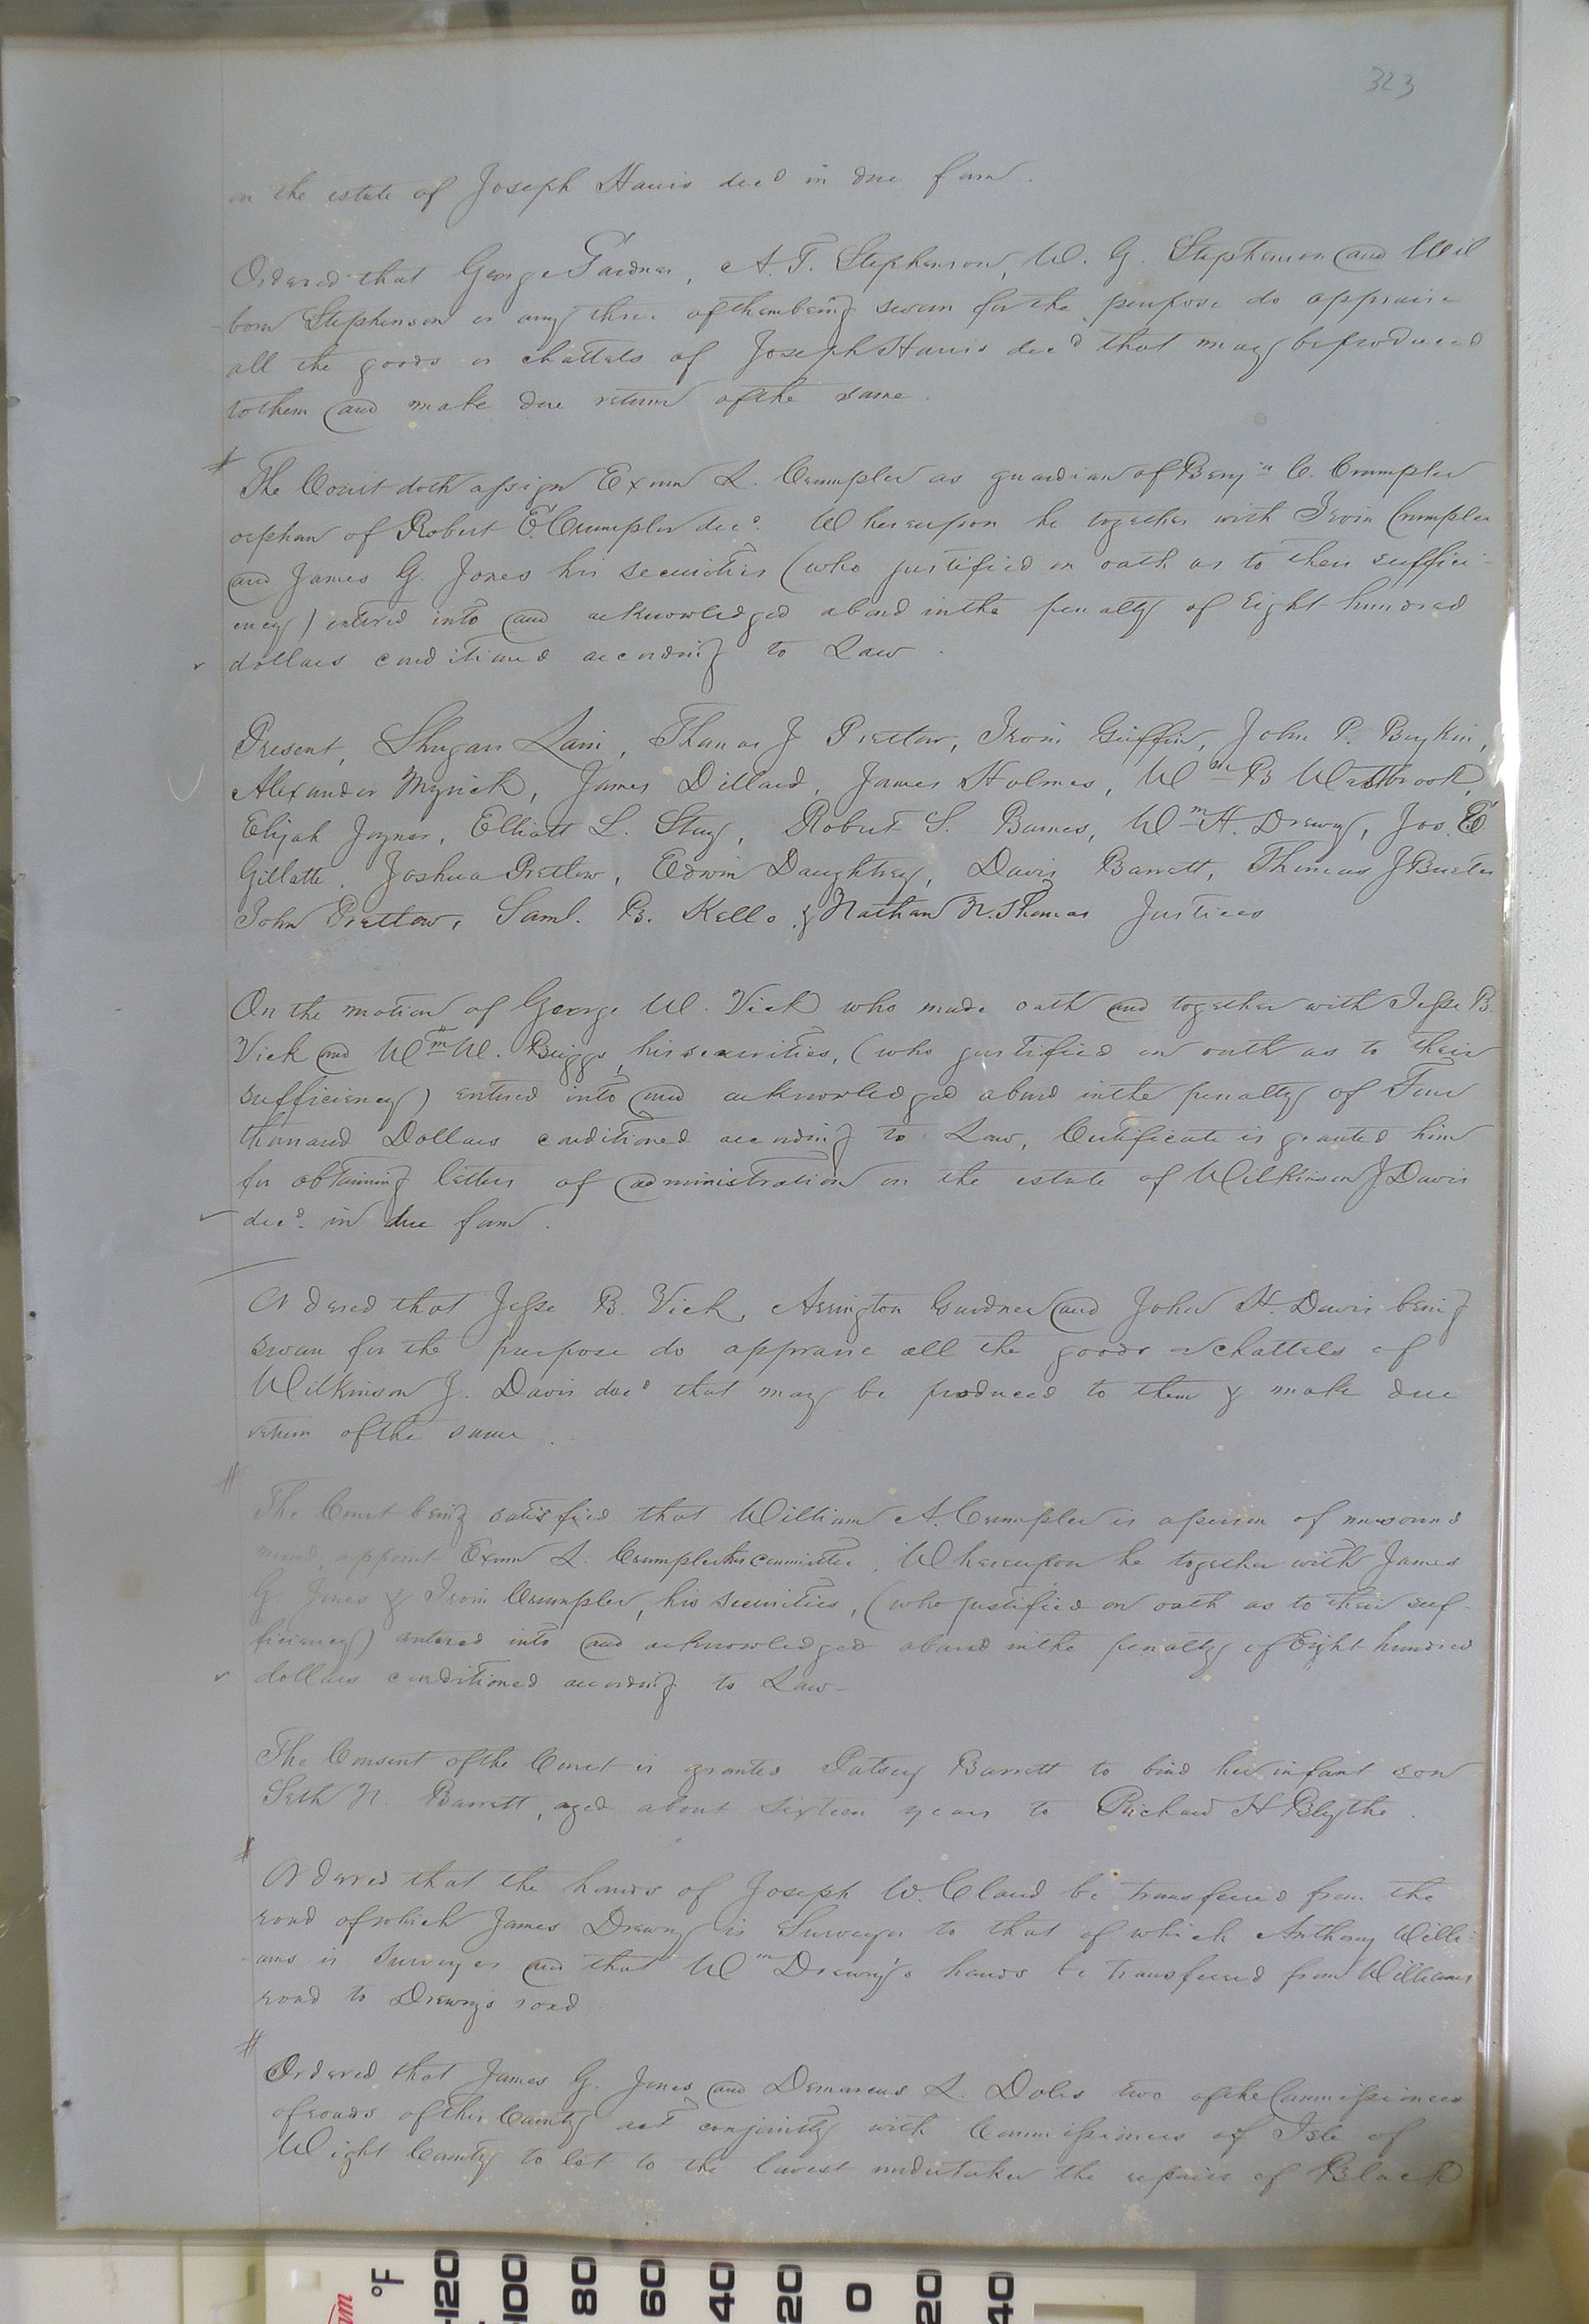 323
on the estate of Joseph Harris decd in due form.
Ordered that George Gardner, A. T. Stephenson, W. G. Stephenson and Wil
born Stephenson or any three of them being sworn for the purpose do appraise
all the goods or chattels of Joseph Harris decd that may be produced
to them and make due return of the same.
The Court doth assign Exum L. Crumpler as guardian of Benjn C. Crumpler
orphan of Robert E. Crumpler decd. Whereupon he together with Irvin Crumpler
and James G. Jones his securities (who justified on oath as to their suffici-
ency) entered into and acknowledged a bond in the penalty of Eight hundred
dollars conditioned according to Law.
Present, Shugars Lain, Thomas J Pretlow, Irvin Griffin, John P. Buykin,
Alexander Myrick, James Dillard, James Holmes, Wm B Westbrook,
Elijah Joyner, Elliott L. Story, Robert S. Barnes, Wm H. Drewry, Jos. E
Gillette. Joshua Pretlow, Edwin Daughtrey, Davis Barrett, Thomas J
John Pretlow, Saml. B. Kello & Nathan N. Thomas Justices
On the motion of George W. Vick who made oath and together with Jesse B.
Vick and Wm W. Briggs, his securities, (who justified on oath as to their
sufficiency) entered into and acknowledged a bond in the penalty of Four
thousand Dollars conditioned according to Law, Certificate is granted him
for obtaining letters of administration on the estate of Wilkinson J. Davis
decd. in due form.
Ordered that Jesse B. Vick, Arrington Gardner and John H. Davis being
sworn for the purpose do appraise all the goods or chattels of
Wilkinson J. Davis decd that may be produced to them & make due
return of the same.
The Court being satisfied that William A. Crumpler is a person of unsound
mind, appoint Exum L. Crumpler his committee. Whereupon he together with James
G Jones & Irvin Crumpler, his securities, (who justified on oath as to their suf-
ficiency) entered into and acknowledged a bond in the penalty of Eight hundred
dollars conditioned according to Law-
The Consent of the Court is granted Patsey Barrett to bind her infant son
Seth N. Barrett, aged about sixteen years to Richard H Blythe.
Ordered that the hands of Joseph W. Claud be transferred from the
road of which James Drewry is Surveyor to that of which Anthony Willi-
ams is Surveyor and that Wm Drewry's hands be transferred from Williams
road to Drewry's road.
Ordered that James G. Jones and Demarcus L. Doles two of the Commissioners
of roads of this County act conjointly with Commissioners of Isle of
Wight County to let to the lowest undertaker the repairs of Black
°F
120
100
80
60
40
20
0
20
40